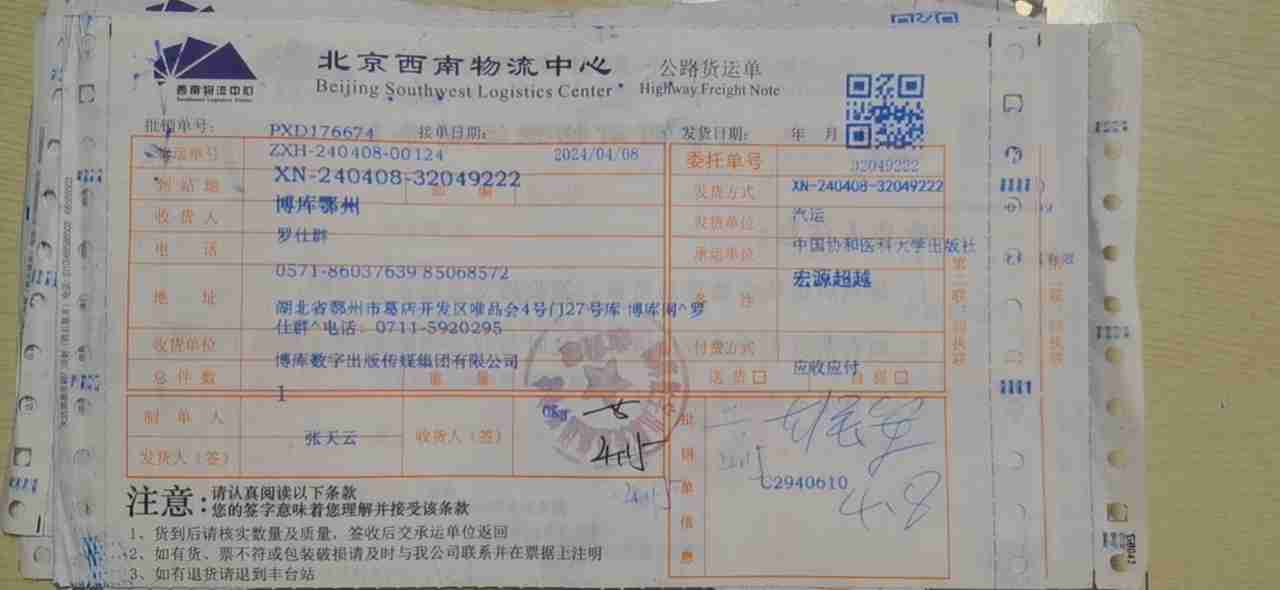 北京西南物流中心 公路货运单
Beijing Southwest Logistics Center Highway Freight Note
西南物流中心
批销单号: PXD176674 接单日期: 发货日期: 年 月
运单号 ZXH-240408-00124 2024/04/08 委托单号 32049222
到站地 XN-240408-32049222 邮 编 发货方式 XN-240408-32049222
收货人 博库鄂州 发货单位 汽运
电 话 罗仕群 承运单位 中国协和医科大学出版社
0571-86037639 85068572 宏源超越
地 址 湖北省鄂州市葛店开发区唯品会4号门27号库 博库阁^罗 备 注
仕群^电话: 0711-5920295
收货单位 博库数字出版传媒集团有限公司 付费方式 应收应付
总件数 1 重 量 0Kg 送货 自提
制单人 张天云 收货人(签)
发货人(签)
批销单信息 C2940610
4.8
第二联:回执联
注意: 请认真阅读以下条款
您的签字意味着您理解并接受该条款
1、货到后请核实数量及质量,签收后交承运单位返回
2、如有货、票不符或包装破损请及时与我公司联系并在票据上注明
3、如有退货请退到丰台站